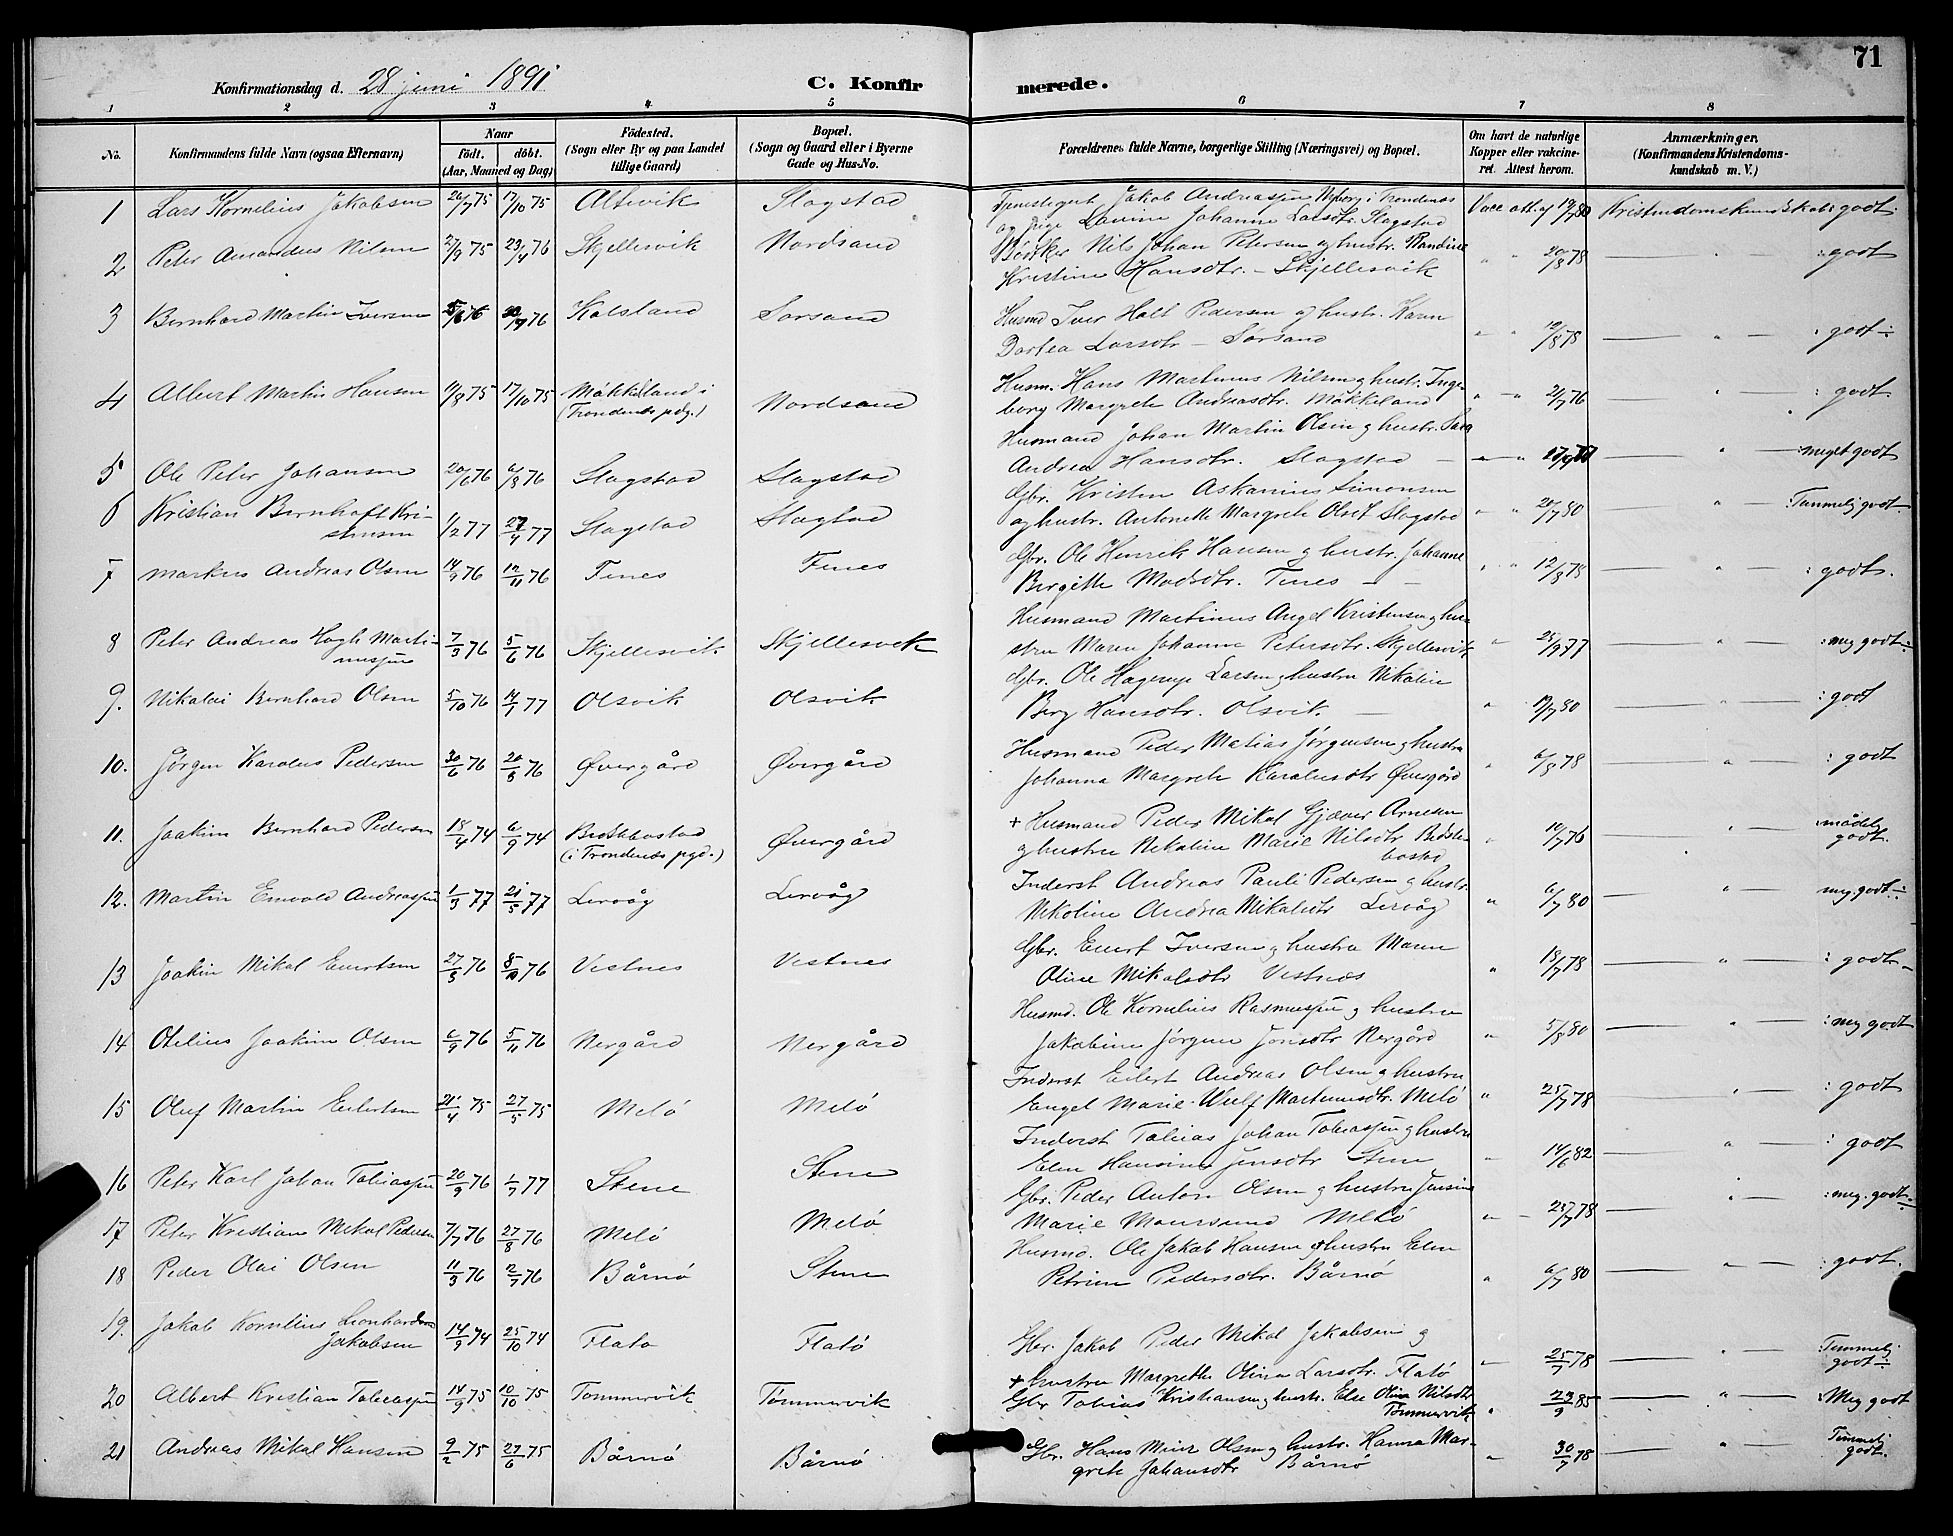 71
Konfirmationsdag d. 28 juni 1891 C. Konfirmerede.
1 2 3 4 5 6 7 8
No. Konfirmandens fulde Navn (ogsaa Efternavn) Naar født. døbt. (Aar, Maaned og Dag) Fødested. (Sogn eller By og paa Landet tillige Gaard) Bopæl. (Sogn og Gaard eller i Byerne Gade og Hus-No. Forældrenes fulde Navne, borgerlige Stilling (Næringsvei) og Bopæl. Om havt de naturlige Kopper eller vakcineret. Attest herom. Anmærkninger, (Konfirmandens Kristendomskundskab m. V.)
1 Lars Kornelius Jakobsen 20/7 75 17/10 75 Altevik Slagstad Tjenestegut Jakob Andreassen Nyborg i Trondenes
og Pige Lavine Johanna Larsdtr. Slagstad Vacc. att. af 19/7 80 Kristendomskundskab: godt.
2 Peter Amandus Nilsen 2/9 75 23/4 76 Skjellesvik Nordsand Bødtker Nils Johan Petersen og hustr. Randine
Kristine Hansdtr. - Skjellesvik " " 20/8 78 " : godt
3 Bernhard Martin Iversen 5/6 76 30/7 76 Kalsland Sørsand Husmd Iver Holt Pedersen og hustr. Karen
Dortea Larsdtr - Sørsand " " 12/8 78 " : godt
4 Albert Martin Hansen 14/8 75 17/10 75 Møkkeland i
(Trondenes pdg.) Nordsand Husm. Hans Martinus Nilsen og hustr. Inge-
borg Margrete Andreasdtr. Møkkeland " " 2/7 76 " : godt
5 Ole Peter Johansen 20/6 76 6/8 76 Slagstad Slagstad Husmand Johan Martin Olsen og hustr. Sara
Andrea Hansdtr. Slagstad - " " " : meget godt
6 Kristian Bernhoft Kri-
stensen 1/2 77 27/4 77 Slagstad Slagstad Gbr. Kristen Askanius Simonsen
og hustr. Antonette Margrete Olset Slagstad " " 20/7 80 " : Temmelig godt.
7 Markus Andreas Olsen 14/9 76 12/11 76 Fines Fines Gbr. Ole Henrik Hansen og hustr. Johanne
Birgitte Madsdtr. Fines - - " " 12/8 78 " : godt.
8 Peter Andreas Hagh Marti-
nussen 7/3 76 5/6 76 Skjellesvik Skjellesvik Husmand Martinus Angel Kristensen og hus-
stru Maren Johanne Petersdtr. Skjellesvik " 25/9 77 " : meg godt
9. Nikolai Bernhard Olsen 5/10 76 14/1 77 Olsvik Olsvik Gbr. Ole Hagerup Larsen og hustru Nikoline
Berg Hansdtr. Olsvik. - " 19/7 80 " : godt
10. Jørgen Karolus Pedersen 30/6 76 20/8 76 Øvergård Øvergård Husmand Peder Matias Jørgensen og hustru
Johanna Margrete Karolusdtr Øvergård " 6/8 78 " : godt
11. Joakim Bernhard Pedersen 18/4 74 6/9 74 
(i Trondenes pgd.) Øvergård + Husmand Peder Mikal Gjæver Arnesen
og hustru Nikoline Marie Nilsdtr " 10/7 76 " : mådel.
godt.
12. Martin Emvald Andreassen 1/3 77 21/5 77 Lervåg Lervåg Inderst Andreas Pauli Pedersen og hustr.
Nikoline Andrea Mikalsdtr Lervåg " 6/7 80 " meg. godt
13 Joakim Mikal Evertsen 27/8 76 8/10 76 Vestnes Vestnes Gbr. Evert Iversen og hustru Maren
Oline Mikalsdtr Vestnes " 18/7 78 " : godt
14 Otelius Joakim Olsen 6/9 76 5/11 76 Nergård Nergård Husmd. Ole Kornelius Rasmussen og hustru
Jakobine Jørgine Jonsdtr Nergård " 5/8 80 " : meg godt
15 Oluf Martin Eilertsen 21/4 75 27/5 75 Melø Melø Inderst Eilert Andreas Olsen og hustru
Engel Marie Wulf Martinusdtr. Melø " 25/7 78 " : godt
16 Peter Karl Johan Tobiassen 20/9 76 1/7 77 Stene Stene Inderst Tobias Johan Tobiassen og hustru
Elen Hansine Jensdtr Stene " 14/6 82 " : godt
17 Peter Kristian Mikal Pedersen 7/7 76 27/8 76 Melø Melø Gbr. Peder Anton Olsen og hustru Jensine
Marie Maursund Melø " 25/7 78 " : meg. godt
18 Peder Olai Olsen 11/3 76 2/7 76 Bårnø Stene Husmd. Ole Jakob Hansen og hustru Elen
Petrine Pedersdtr. Bårnø " 6/7 80 " : godt.
19. Jakob Kornelius Leonhardsen
Jakobsen 14/9 74 25/10 74 Flatø Flatø Gbr. Jakob Peder Mikal Jakobsen og
+ hustru Margrethe Olina Larsdtr. Flatø " 25/7 78 " Temmelig
godt
20 Albert Kristian Tobiassen 14/9 75 10/10 75 Tømmervik Tømmervik Gbr Tobias Kristiansen og hustr. Else Olina Nilsdtr
Tømmervik " 23/9 85 " Meg godt
21 Andreas Mikal Hansen 9/2 75 27/6 75 Bårnø Bårnø Gbr. Hans Olsen og hustr. Hanna Mar-
grete Johansdtr Bårnø " 30/7 78 " Temmelig
godt.